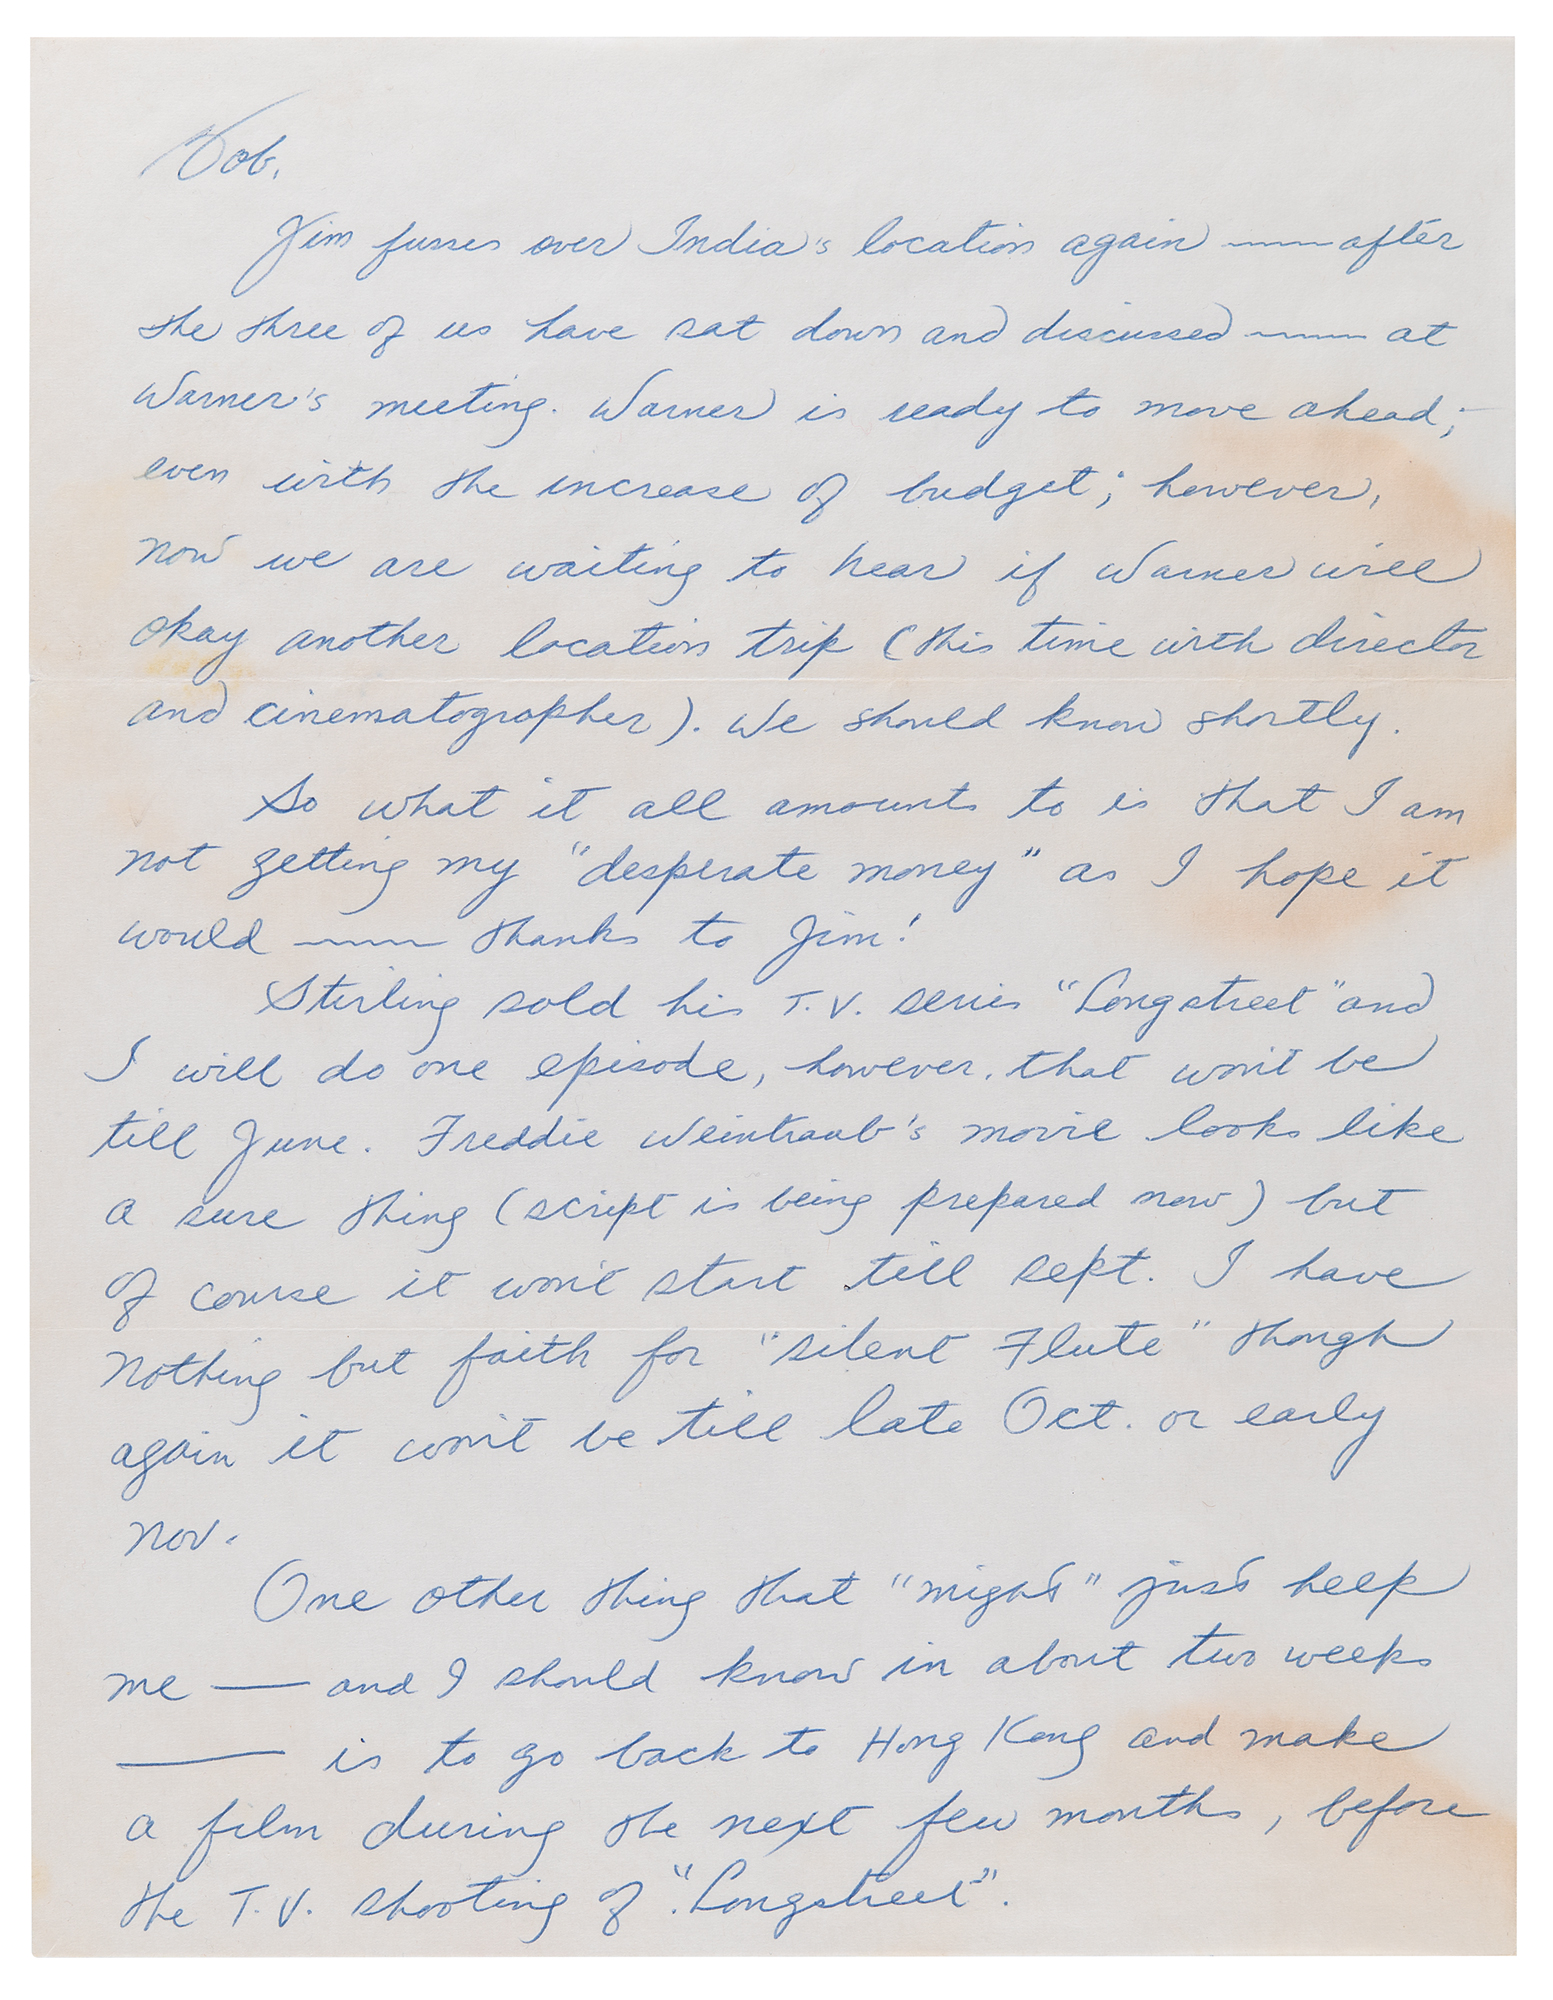 Bob,
Jim fusses over India's location again —— after
the three of us have sat down and discussed —— at
Warner's meeting. Warner is ready to move ahead;
even with the increase of budget; however,
now we are waiting to hear if Warner will
okay another location trip (this time with director
and cinematographer). We should know shortly.
So what it all amounts to is that I am
not getting my "desperate money" as I hope it
would —— thanks to Jim!
Stirling sold his T.V. series "Longstreet" and
I will do one episode, however, that won't be
till June. Freddie Weintraub's movie looks like
a sure thing (script is being prepared now) but
of course it won't start till sept. I have
nothing but faith for "silent Flute" though
again it won't be till late Oct. or early
Nov.
One other thing that "might" just help
me — and I should know in about two weeks
—— is to go back to Hong Kong and make
a film during the next few months, before
the T.V. shooting of "Longstreet".